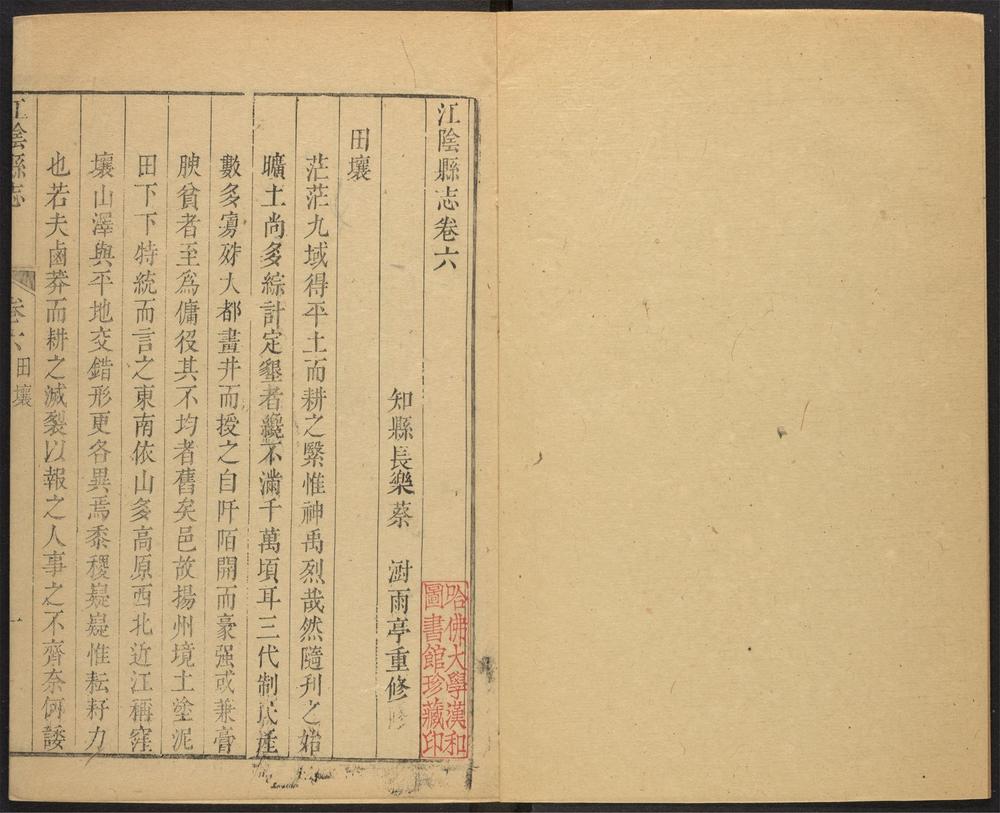 江陰縣志卷六
知縣長樂蔡澍雨亭重修
田壤
茫茫九域得平土而耕之繄惟神禹烈哉然隨刊之始
曠土尚多綜計定墾者纔不滿千萬頃耳三代制民產
數多寡殊大都畫井而授之自阡陌開而豪强或兼膏
腴貧者至爲傭役其不均者舊矣邑故揚州境土塗泥
田下下特統而言之東南依山多高原西北近江稱窪
壤山澤與平地交錯形更各異焉黍稷嶷嶷惟耘耔力
也若夫鹵莽而耕之滅裂以報之人事之不齊奈何諉
江陰縣志
卷六田壤
一
哈佛大學漢和
圖書館珍藏印